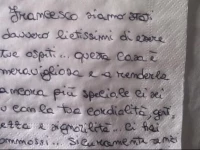 Francesco siamo stati
davvero lietissimi di essere
tuoi ospiti... questa casa è
meravigliosa e a renderla
ancora più speciale ci sei
tu con la tua cordialità, 
e signorilità... ci hai
Sicuramente